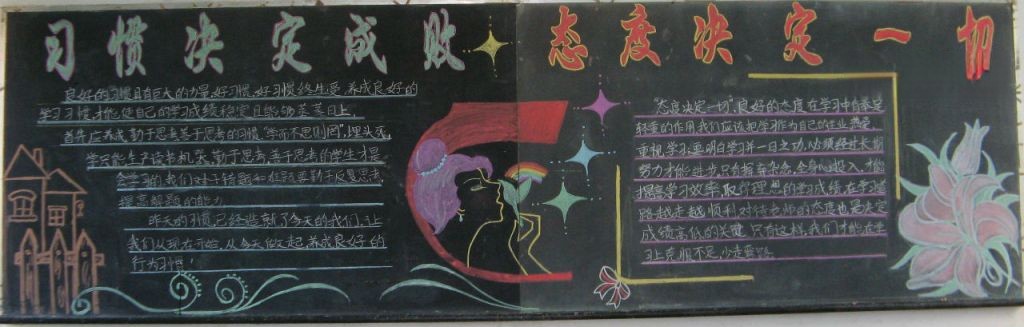 习惯决定成败
良好的习惯具有巨大的力量,好习惯,好习惯终生受,养成良好的
学习习惯才能使自己的学习成绩稳定且能够蒸蒸日上。
首先应养成勤于思考善于思考的习惯"学而不思则罔",埋头
学只能生产读书机器,勤于思考善于思考的学生才是
会学习的,我们对于错题和难题要勤于反复思考
提高解题的能力
昨天的习惯已经造就了今天的我们,让
我们从现在开始,从今天做起,养成良好的
行为习惯!
态度决定一切
"态度决定一切",良好的态度在学习中有着足
轻重的作用,我们应该把学
重视学习,要明白学习并一日之功,必须经过长期
努力才能进步,只有摒弃杂念,全身心投入,才能
提高学习效率,取得理想的学习成绩,在学习道
路越走越顺利,对待老师的态度也是决定
成绩高低的关键,只有这样,我们才能在学
习上克服不足,少走弯路